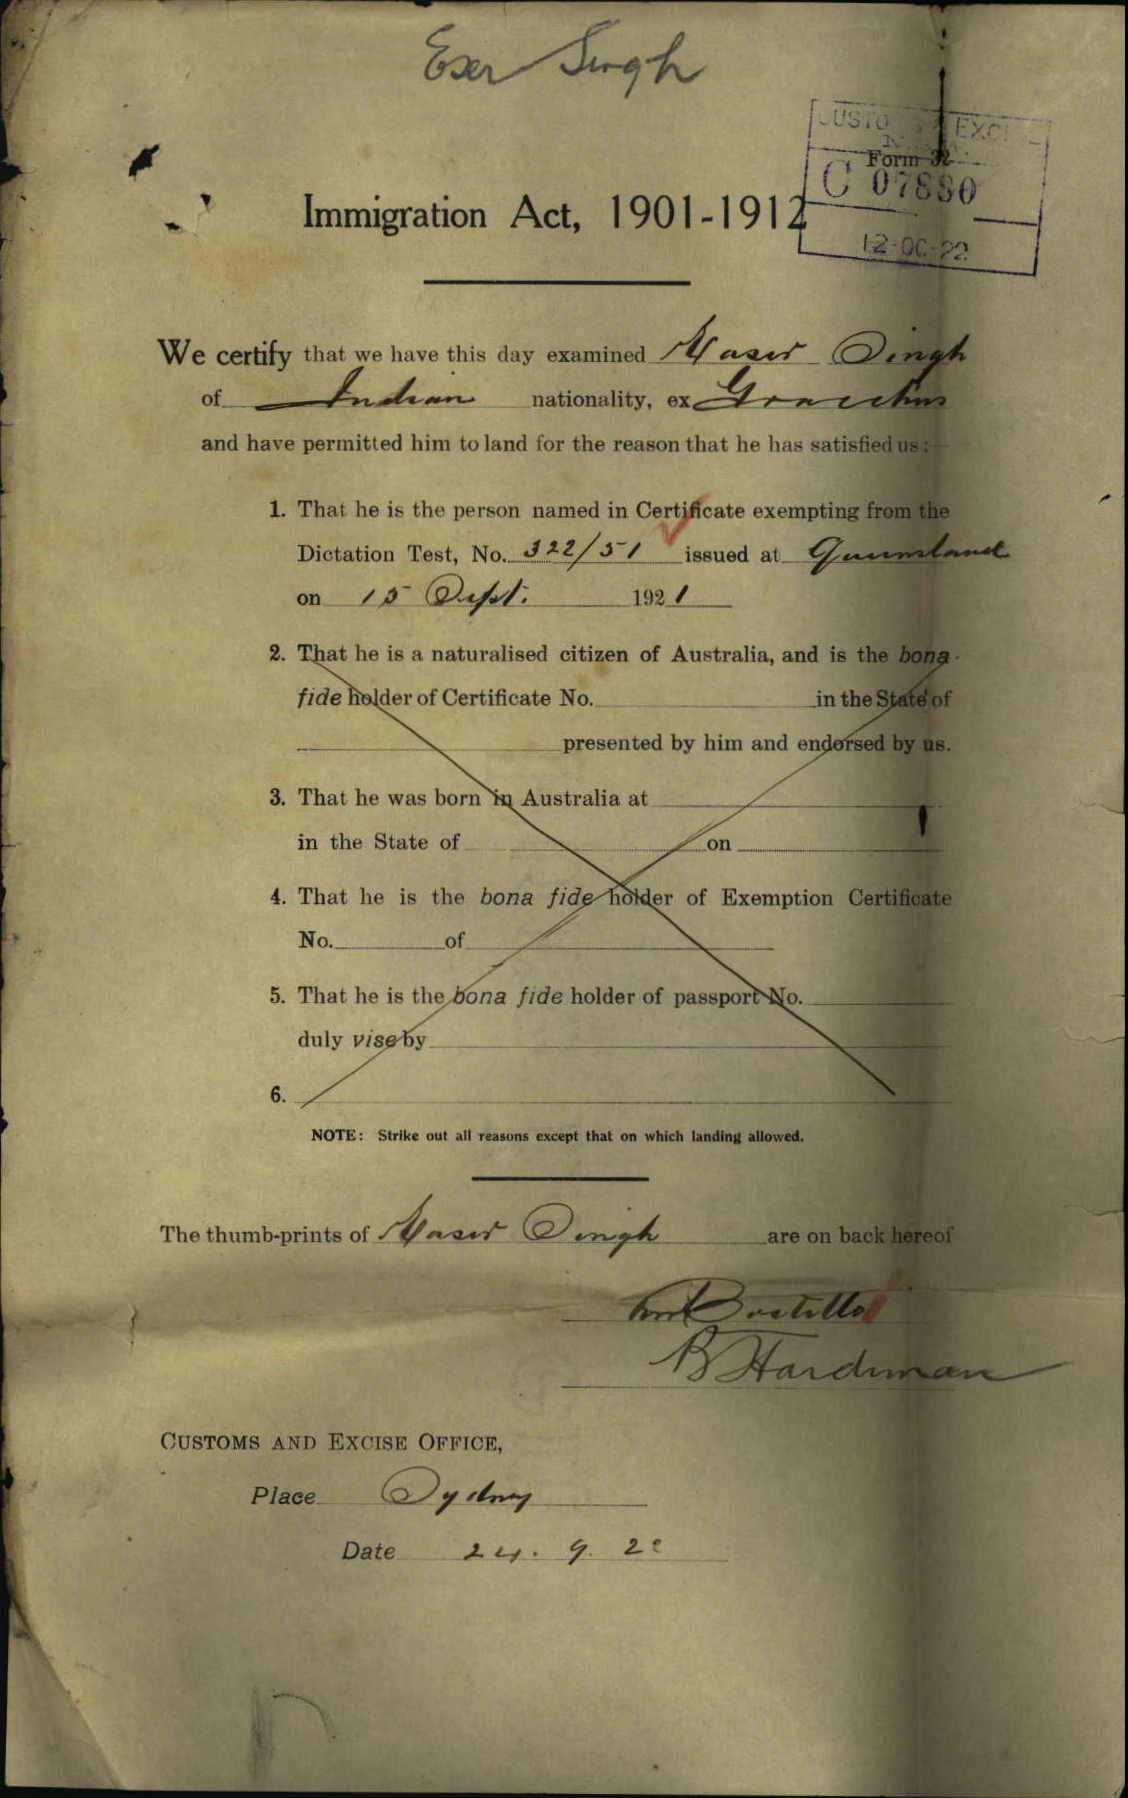 Eser Singh
CUSTOMS & EXCISE
Form 32
C 07880
Immigration Act, 1901-1912
12-OC-22
We certify that we have this day examined Kaser Singh
of Indian nationality, ex Gracchus
and have permitted him to land for the reason that he has satisfied us:—
1. That he is the person named in Certificate exempting from the
Dictation Test, No. 322/51 issued at Queensland
on 15 Sept. 1921
2. That he is a naturalised citizen of Australia, and is the bona
fide holder of Certificate No. in the State of
presented by him and endorsed by us.
3. That he was born in Australia at
in the State of on
4. That he is the bona fide holder of Exemption Certificate
No. of
5. That he is the bona fide holder of passport No.
duly vise by
6.
NOTE: Strike out all reasons except that on which landing allowed.
The thumb-prints of Kaser Singh are on back hereof
B Hardiman
CUSTOMS AND EXCISE OFFICE,
Place Sydney
Date 24. 9. 22